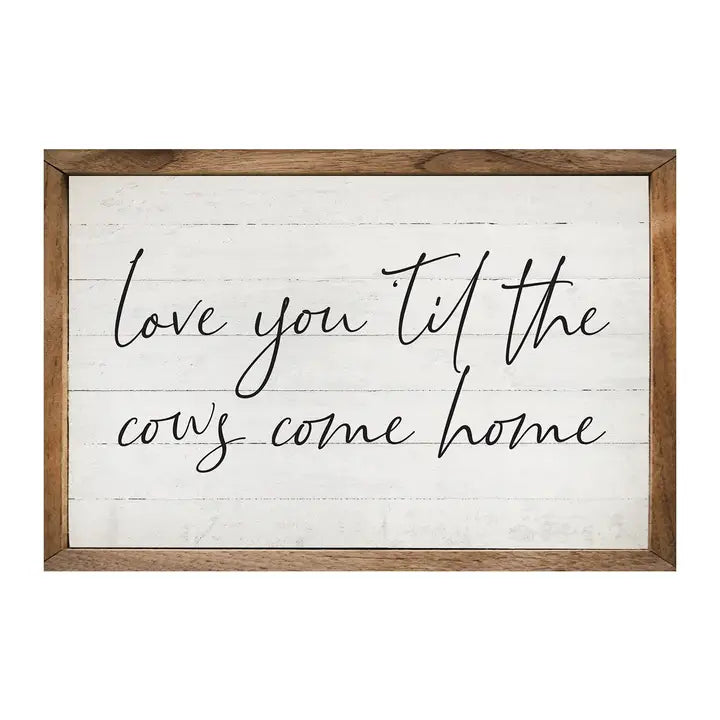 love you 'til the
cows come home